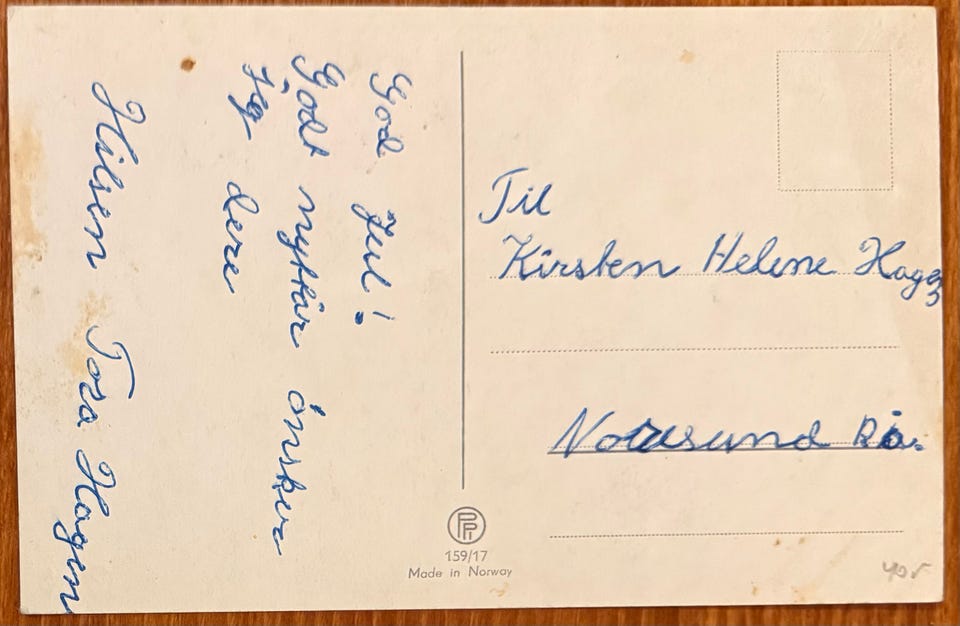 God Jul!
Godt nyttår önsker
Jeg dere
Hilsen Tora Hagen
Til
Kirsten Helene Hagen
Noresund
PP
159/17
Made in Norway